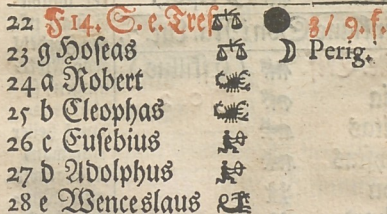 22 F 14. S. e. Tref ♎ ● 3/ 9. f.
23 g Hoſeas ♎ ☽ Perig.
24 a Robert ♏
25 b Cleophas ♏
26 c Euſebius ♐
27 d Adolphus ♐
28 e Wenceslaus ♑